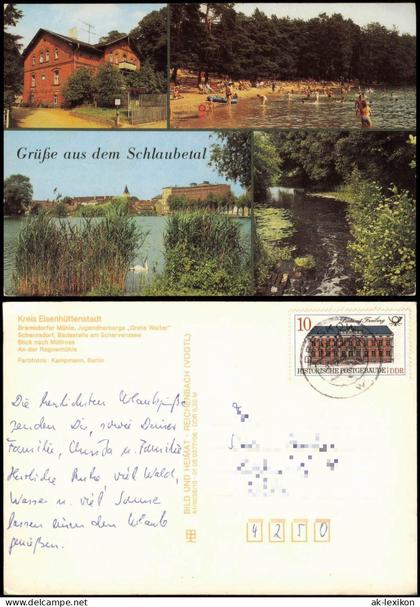 Grüße aus dem Schlaubetal
Kreis Eisenhüttenstadt
Bremsdorfer Mühle, Jugendherberge „Grete Walter"
Schernsdorf, Badestelle am Schervenzsee
Blick nach Müllrose
An der Ragowmühle
Farbfotos: Kampmann, Berlin
BILD UND HEIMAT · REICHENBACH (VOGTL)
10
Postamt Freiberg
HISTORISCHE POSTGEBÄUDE
DDR
Die herzlichsten Urlaubsgrüße
senden Dir, sowie Deiner
Familie, Christa u. Familie
Herrliche Ruhe, viel Wald,
Wasser u. viel Sonne
lassen einen den Urlaub
genießen.
4250
© ak-lexikon.de